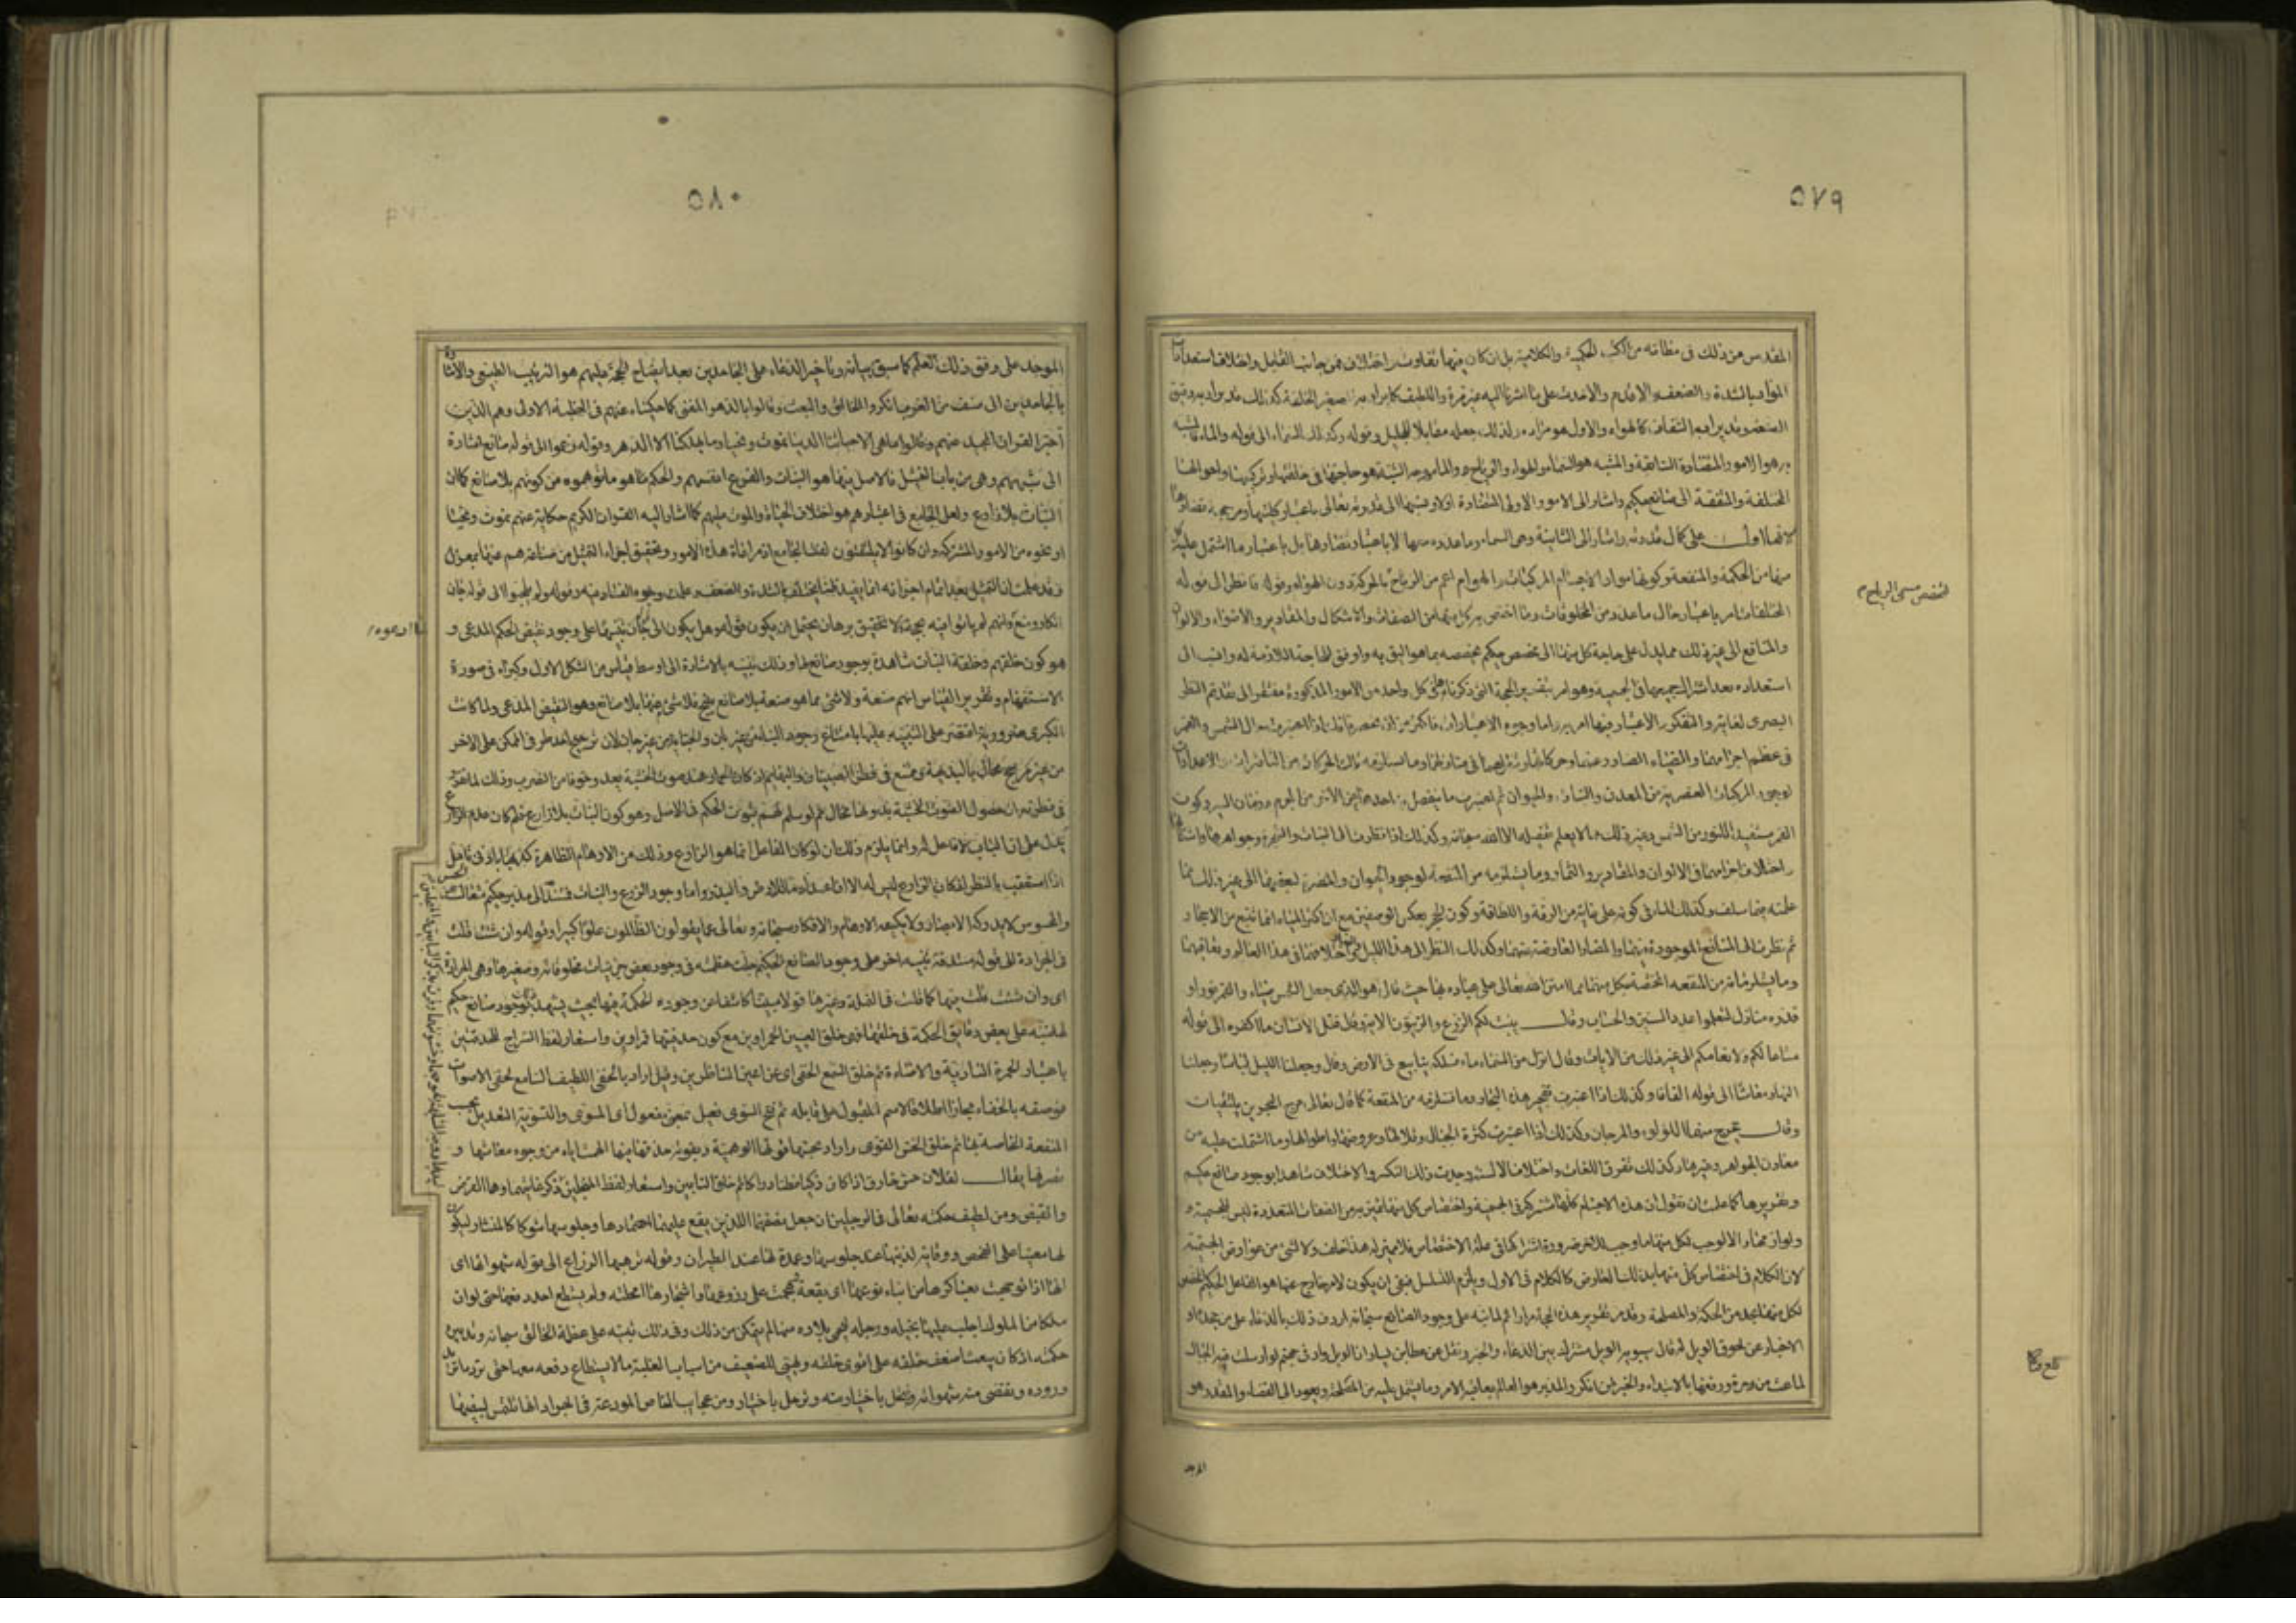 ٥٧٩
المقدس عن ذلك فى مظانه من الكتب الحكمية والكلامية بل ان كان فيهما تفاوت واختلاف فمن جانب القابل واختلاف استعدادات
المواد بالشدة والضعف والاقدم والاحدث على ما اشرنا اليه غير مرة واللطيف كما يراد به صغير الخلقة كذلك قد يراد به رقيق
الصنعة وقد يراد به الشفاف كالهواء والاول هو مراده ولذلك جعله مقابلا للجليل وقوله وكذلك السماء الى قوله والماء فالمشبه
به هو الامور المتضادة السابقة والمشبه هو السماء والهواء والرياح والماء ووجه الشبه هو حاجتها فى خلقتها وتركيبها واحوالها
المختلفة والمتفقة الى صانع حكيم واشار الى الامور الاولى المتضادة اولا ونسبها الى قدرته تعالى باعتبار
على كمال قدرته واشار الى الثانية وهى السماء وما عدده معها لا باعتبار تضادها بل باعتبار ما اشتمل عليه كل
منها من الحكمة والمنفعة وكونها مواد الاجسام المركبات والهواء اعم من الرياح بالحركة دون الهواء وقوله فانظر الى قوله
المختلفات امر باعتبار حال ما عدد من المخلوقات وما اختص به كل منها من الصفات والاشكال والمقادير والاضواء والالوان
والمنافع الى غير ذلك مما يدل على حاجة كل منها الى مخصص حكيم يخصصه بما هو اليق به واوفق للحاجة اللازمة له وانسب الى
استعداده بعد اشتراك جميعها فى الجسمية وهو امر بتقرير الحجة التى ذكرناها فى كل واحد من الامور المذكورة مفتقر الى تقدم النظر
البصرى لغايته والتفكر والاعتبار فيها
فى عظم اجرامها والضياء الصادر عنها وحركاتها
لوجود المركبات العنصرية من المعدن والنبات والحيوان ثم لعبرت ما ينفصل به احدهما عن الاخر من الجرم وزمان السير وكون
القمر مستفيدا للنور من الشمس وغير ذلك مما لا يعلم تفصيله الا الله سبحانه وكذلك اذا نظرت الى النبات والشجر وجواهرها
واختلاف اجزائهما فى الالوان والمقادير والثمار وما يستلزمه من المنفعة لوجود الحيوان والمضرة لبعضها الى غير ذلك مما
علمته فيما سلف وكذلك الماء فى كونه على غاية من الرقة واللطافة وكون الحجر بعكس الوصفين مع ان اكثر المياه انما تنبع من الاحجار
ثم نظرت الى المنافع الموجودة فيهما والمضار العارضة عنهما وكذلك النظر الى هذا الليل والنهار واختلافهما فى هذا العالم وتعاقبهما
وما يستلزمانه من المنفعة المختصة بكل منهما مما امتن الله تعالى على عباده بها حيث قال هو الذى جعل الشمس ضياء والقمر نورا و
قدره منازل لتعلموا عدد السنين والحساب وقال ينبت لكم الزرع والزيتون الاية وقال قتل الانسان ما اكفره الى قوله
متاعا لكم ولانعامكم الى غير ذلك من الايات وقال انزل من السماء ماء فسلكه ينابيع فى الارض وقال وجعلنا الليل لباسا وجعلنا
النهار معاشا الى قوله الفافا وكذلك اذا اعتبرت تفجير هذه البحار وما تستلزمه من المنفعة كما قال تعالى مرج البحرين يلتقيان
وقال يخرج منهما اللؤلؤ والمرجان وكذلك اذا اعتبرت كثرة الجبال وقلالها وعروضها واطوالها وما اشتملت عليه من
معادن الجواهر وغيرها وكذلك تفرق اللغات واختلاف الالسنة وجدت ذلك التكثر والاختلاف شاهدا بوجود صانع حكيم
وتقريرها كما علمت ان نقول ان هذه الاجسام كلها مشتركة فى الجسمية واختصاص كل منها بما يتميز به من الصفات المتعددة ليس للجسمية و
لوازمها والا لوجب لكل منها ما وجب للاخر ضرورة اشتراكها فى علة الاختصاص فلا مميز له هذا خلف ولا لشئ من عوارض الجسمية
لان الكلام فى اختصاص كل منها بذلك العارض كالكلام فى الاول ويلزم التسلسل فبقى ان يكون لامر خارج عنها هو الفاعل الحكيم المخصص
لكل منها بحد من الحكمة والمصلحة وقد مر تقرير هذه الحجة مرارا ثم لما نبه على وجود الصانع سبحانه اردف ذلك بالدعاء على من جحده او
الاخبار عن لحوق الويل له قال سيبويه الويل مشترك بين الدعاء والخبر ونقل عن عطا بن يسار ان الويل واد فى جهنم لو ارسلت فيه الجبال
لماعت من حره ورفعها بالابتداء والخبر لمن انكر والمدبر هو العالم بعاقبة الامر وما يشتمل عليه من المصلحة ويعود الى القضاء والمقدر هو
الموجد
٥٨٠
الموجد على وفق ذلك العلم كما سبق بيانه وتاخير الدعاء على الجاحدين بعد ايضاح الحجة عليهم هو الترتيب الطبيعى والاشارة
بالجاحدين الى صنف من العرب انكروا الخالق والبعث وقالوا بالدهر المفنى كما حكيناه عنهم فى الخطبة الاولى وهم الذين
اخبر القران المجيد عنهم وقالوا ما هى الا حياتنا الدنيا نموت ونحيا وما يهلكنا الا الدهر وقوله زعموا الى قوله صانع اشارة
الى شبهتهم وهى من باب التمثيل فالاصل فيها هو النبات والفرع انفسهم والحكم ما هو ما توهموه من كونهم بلا صانع كما ان
النبات بلا زارع ولعل الجامع فى اعتبارهم هو اختلاف الحياة والموت عليهم كما اشار اليه القران الكريم حكاية عنهم نموت ونحيا
او نحوه من الامور المشتركة وان كانوا لا يلتفتون لفت الجامع اذ مراعاة هذه الامور وتحقيق اجزاء التمثيل من صناعة هم عنها بمعزل
وقد علمت ان التمثيل بعد اتمام اجزائه انما يفيد ظنا يختلف بالشدة والضعف وعلمت وجوه الفساد فيه وقوله ولم يلجؤا الى قوله جان
انكار ومنع لانهم لم ياتوا فيه بحجة ولا تحقيق برهان يحتمل ان يكون قوله وهل يكون الى جان تنبيها على وجود نقيض الحكم المدعى و
هو كون خلقهم وخلقة النبات شاهدة بوجود صانع لها وذلك تنبيه بالاشارة الى اوسط قياس من الشكل الاول وكبراه فى صورة
الاستفهام وتقرير القياس انهم صنعة ولا شئ مما هو صنعة بلا صانع ينتج فلا شئ منها بلا صانع وهو النقيض المدعى ولما كانت
الكبرى ضرورية اقتصر على التنبيه عليها بامتناع وجود البناء من غير بان والجناية من غير جان لان ترجيح احد طرفى الممكن على الاخر
من غير مرجح محال بالبديهة وممتنع فى فطن الصبيان والبهايم اذ كان الحمار عند صوت الخشبة يعدو خوفا من الضرب وذلك لما تقرر
فى فطرته ان حصول الصوت الخشبة بدونها محال ثم لو سلم لهم ثبوت الحكم فى الاصل وهو كون النبات بلا زارع فلم كان عدم الزارع
يدل على ان النبات لا فاعل له وانما يلزم ذلك ان لو كان الفاعل انما هو الزارع وذلك من الاوهام الظاهرة كذبها بادنى تامل
اذا استعقب بالنظر لكان الزارع ليس له الا اعداد ما للارض والبذر واما وجود الزرع والنبات فمستند الى مدبر حكيم متعال عن الحس
والمحسوس لا يدركه الابصار ولا يكيفه الاوهام والافكار سبحانه وتعالى عما يقولون الظالمون علوا كبيرا وقوله وان شئت قلت
فى الجرادة الى قوله مستدقة تنبيه اخر على وجود الصانع الحكيم جلت عظمته فى وجود بعض جزئيات مخلوقاته وصغيرها وهى الجرادة
اى وان شئت قلت فيها كما قلت فى النملة وغيرها قولا مبينا كاشفا عن وجوه الحكمة فيها بحيث يشهد بوجود صانع حكيم
فنبه على بعض دقايق الحكمة فى خلقها فى خلق العينين الحمراوين مع كون حدقتيها قمراوين واستعار لفظ السراج للحدقتين
باعتبار الحمرة النارية والاضاءة ثم خلق السمع الخفى اى عن اعين الناظرين وقيل اراد بالخفى اللطيف السامع لخفى الاصوات
فوصفه بالخفاء مجازا اطلاقا لاسم المقبول على قابله ثم فتح السوى فعيل بمعنى مفعول اى المسوى والتسوية التعديل بحسب
المنفعة الخاصة بها ثم خلق الحس القوى واراد بحسها قوتها الوهمية وبقوته حذقها فيما الهمت اياه من وجوه معاشها و
تصرفها يقال لفلان حس حاذق اذا كان ذكيا فطنا دراكا ثم خلق النابين واستعار لفظ المنجلين وذكر غايتهما وهما القرض
والقبض ومن لطيف حكمته تعالى فى الرجلين ان جعل نصفهما اللذين يقع عليهما اعتمادها وجلوسها شوكا كالمنشار ليكون
لها معينا على الفحص ووقاية لذنبها عند جلوسها وعمدة لها عند الطيران وقوله يرهبها الزراع الى قوله شهواتها اى
انها اذا توجهت بعساكرها من ابناء نوعها الى بقعة هجمت على زروعها واشجارها امحلته ولم يستطع احد دفعها حتى لو ان
ملكا من الملوك اجلب عليها بخيله ورجله ليحمى بلاده منها لم يتمكن من ذلك وفى ذلك تنبيه على عظمة الخالق سبحانه وتدبير
حكمته اذ كان يبعث اضعف خلقه على اقوى خلقه ويهيئ للضعيف من اسباب الغلبة ما لا يستطاع دفعه معها حتى ترد ما تريد
وروده وتقضى منه شهواتها فتحل باختيار منه وترحل باختيار ومن عجايب الخواص المودعة فى الجراد انها تلتمس لبيضها